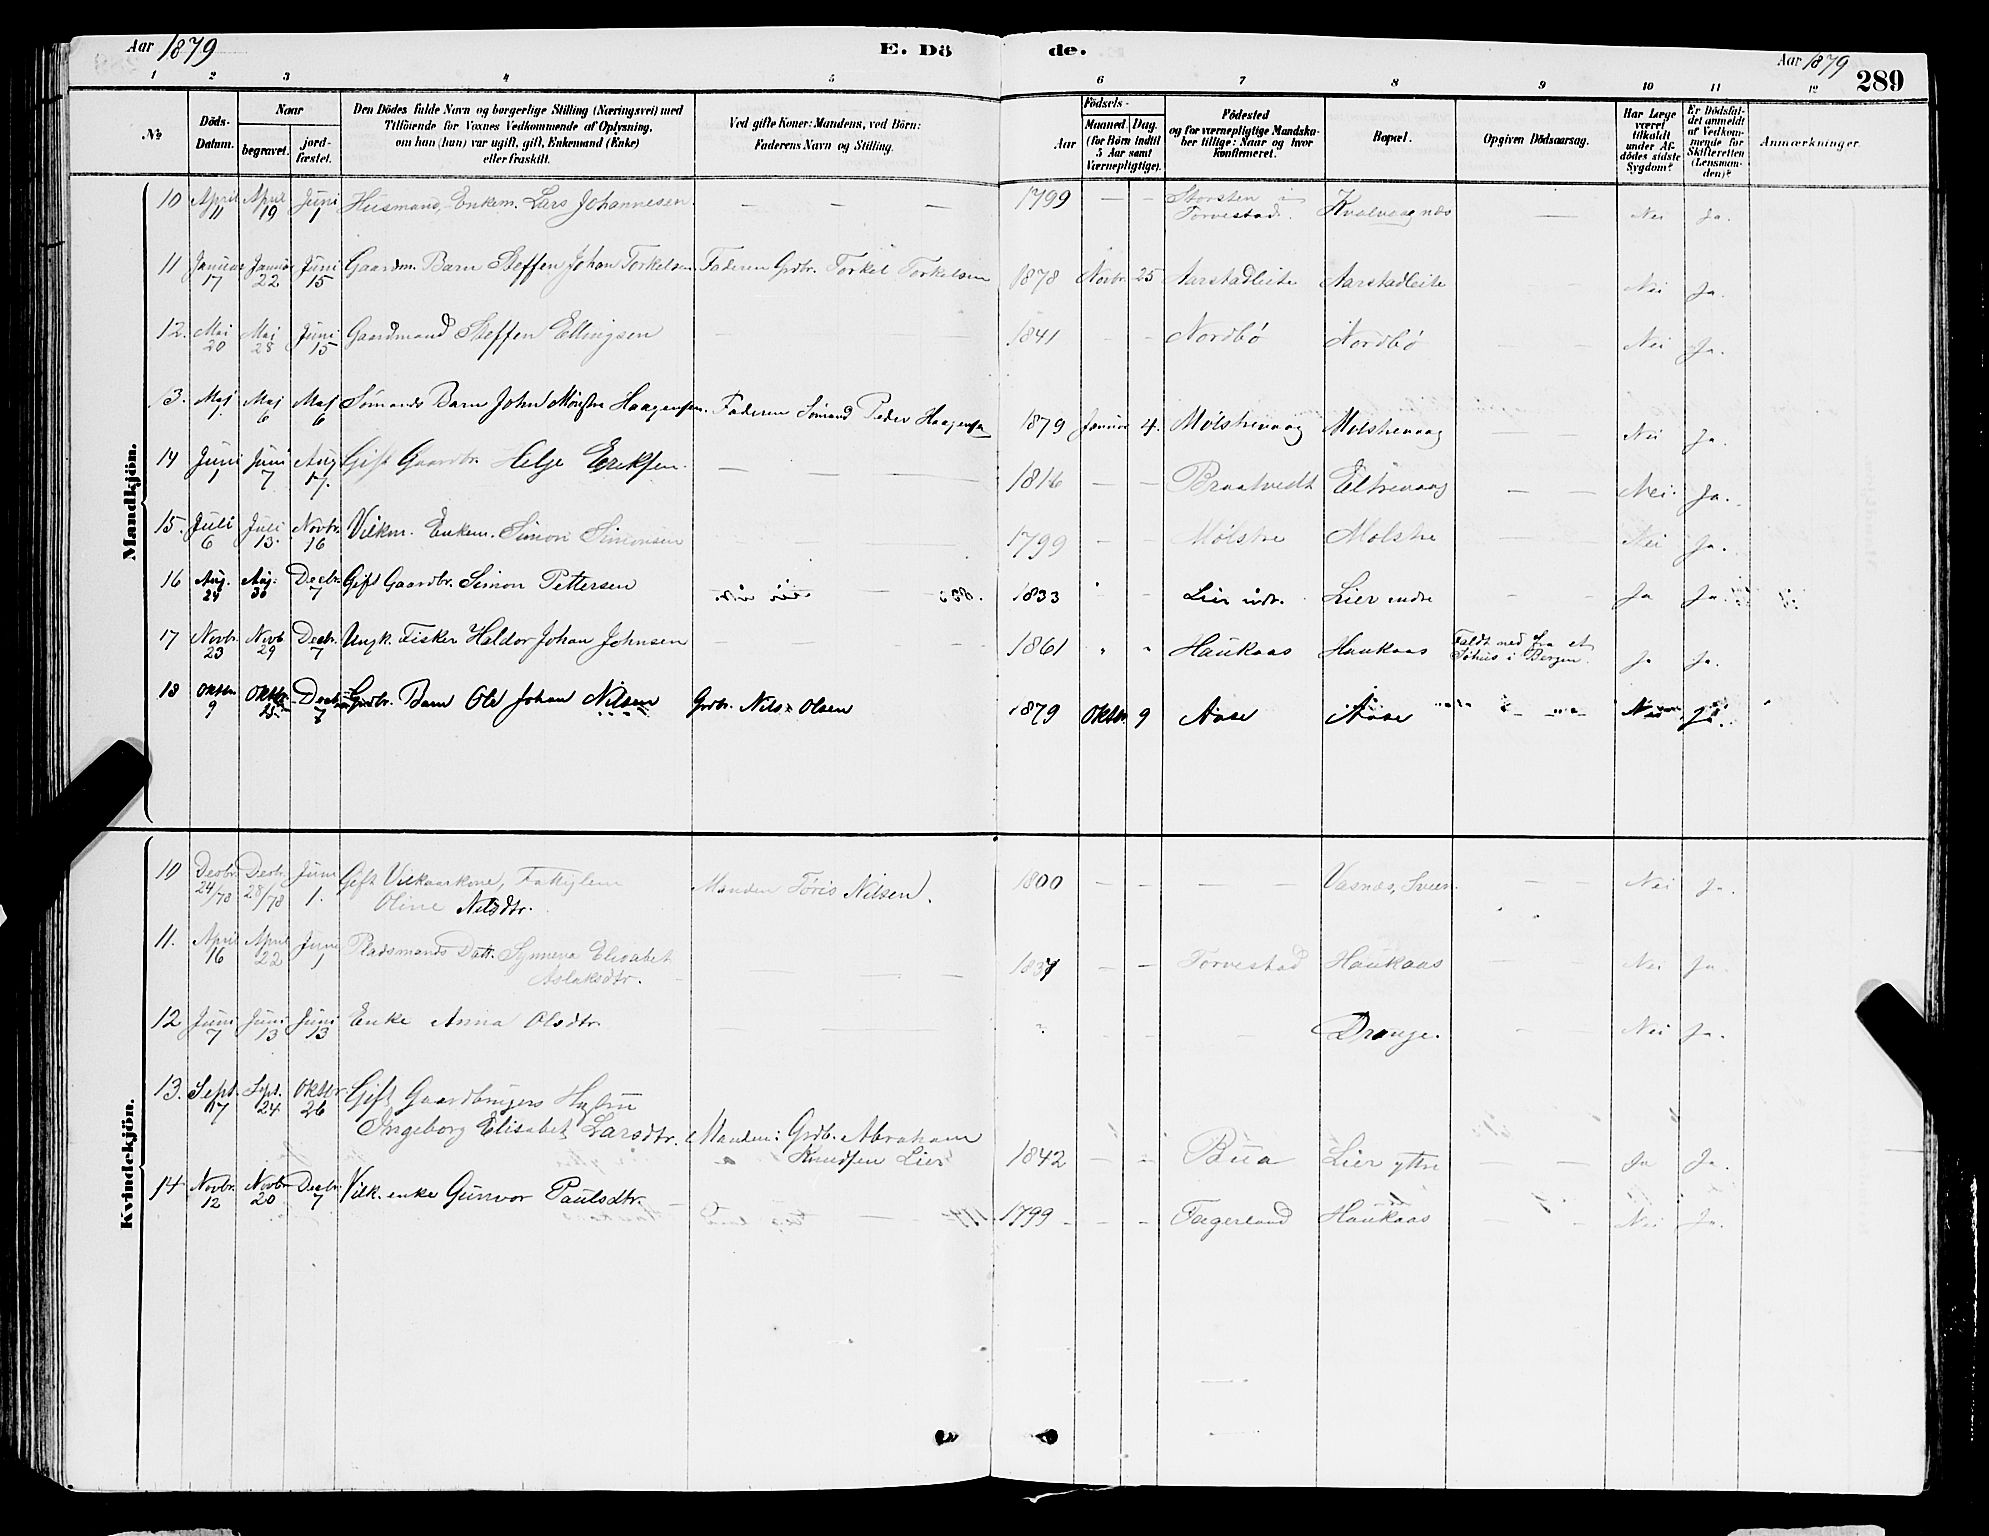 Aar 1879
E. Dö
de.
Aar 1879
289
1 2 3 4 5 6 7 8 9 10 11 12
№
Döds-Datum.
Naar
begravet.
jord-fæstet.
Den Dödes fulde Navn og borgerlige Stilling (Næringsvei) med
Tilföiende for Voxnes Vedkommende af Oplysning,
om han (hun) var ugift, gift, Enkemand (Enke)
eller fraskilt.
Ved gifte Koner: Mandens, ved Börn:
Faderens Navn og Stilling.
Födsels-
Aar
Maaned. Dag.
(for Börn indtil
5 Aar samt
Værnepligtige).
Födested
og for værnepligtige Mandska-
ber tillige: Naar og hvor
konfirmeret.
Bopæl.
Opgiven Dödsaarsag.
Har Læge
været
tilkaldt
under Af-
dödes sidste
Sygdom?
Er Dödsfal-
det anmeldt
af Vedkom-
mende for
Skifteretten
(Lensman-
den)?
Anmærkninger.
Mandkjön.
10 April 11 April 19 Juni 1 Husmand, Enkem. Lars Johannesen — — — 1799 — — Storsten i Torvestad. Kvalvaagnæs — Nei Ja.
11 Januar 17 Januar 22 Juni 15 Gaardm. Barn Steffen Johan Torkelsen Faderen Grdbr. Torkel Torkelsen 1878 Novbr. 25 Aarstadleite Aarstadleite — — Nei Ja.
12. Mai 20 Mai 28 Juni 15 Gaardmand Steffen Ellingsen — — — 1841 - - Nordbö Nordbö — — Nei Ja.
13. Maj 1 Maj 6 Maj 6 Sömands Barn John Mönster Haagensen. Faderen Sömand Peder Haagensen 1879 Januar 4. Mölstrevaag Molstrevaag — — Nei Ja.
14 Juni 1 Juni 7 Aug 17. Gift Gaardbr. Helje Eriksen. — — — 1816 — — Braatvedt Eltrevaag — — Nei. Ja.
15. Juli 6 Juli 13. Novbr. 16 Vilkm. Enkem. Simon Simonsen — — — 1799 - - Mölstre Molstre — — Nei Ja.
16 Aug. 24 Aug. 30 Decbr. 7 Gift Gaardbr. Simon Pettersen — — 1833 Lier indr. Lier indre - - Ja Ja.
17 Novbr. 23 Novb 29 Decbr. 7 Ungk. Fisker Haldor Johan Johnsen — — 1861 " " Haukaas Haukaas Faldt ned fra et Söhus i Bergen. Ja Ja.
18 Oktbr 9 Oktbr 25 Decbr 7 Grdbr. Barn Ole Johan Nilsen Grdbr. Nils Olsen 1879 Oktbr. 9 Aase Aase - - Nei Ja.
Kvindekjön.
10 Decbr. 24/78 Decbr. 28/78 Juni 1. Gift Vilkaarkone,
Oline Nilsdtr. Manden Töris Nilsen. 1800 — — — — Vasnæs, — Nei Ja.
11. April 16 April 22 Juni 1 Pladsmands Datt. Synneva Elisabet
Aslaksdtr. — — — 1837 — - Torvestad Haukaas — — Nei Ja.
12 Juni 7 Juni 13 Juni 13 Enke Anna Olsdtr. — ? - - — Drange. — — Nei Ja.
13. Sept. 17 Sept. 24 Oktbr 26 Gift Gaardbrugers Hustru
Ingeborg Elisabet Larsdtr. Manden: Grdb. Abraham
Knudsen Lier 1842 — - Bua Lier yttre — — Ja Ja.
14 Novbr. 12 Novbr 20 Decbr. 7 Vilk. enke Gunvor Paulsdtr. — — 1799 - - Fagerland Haukaas — — Nei Ja.